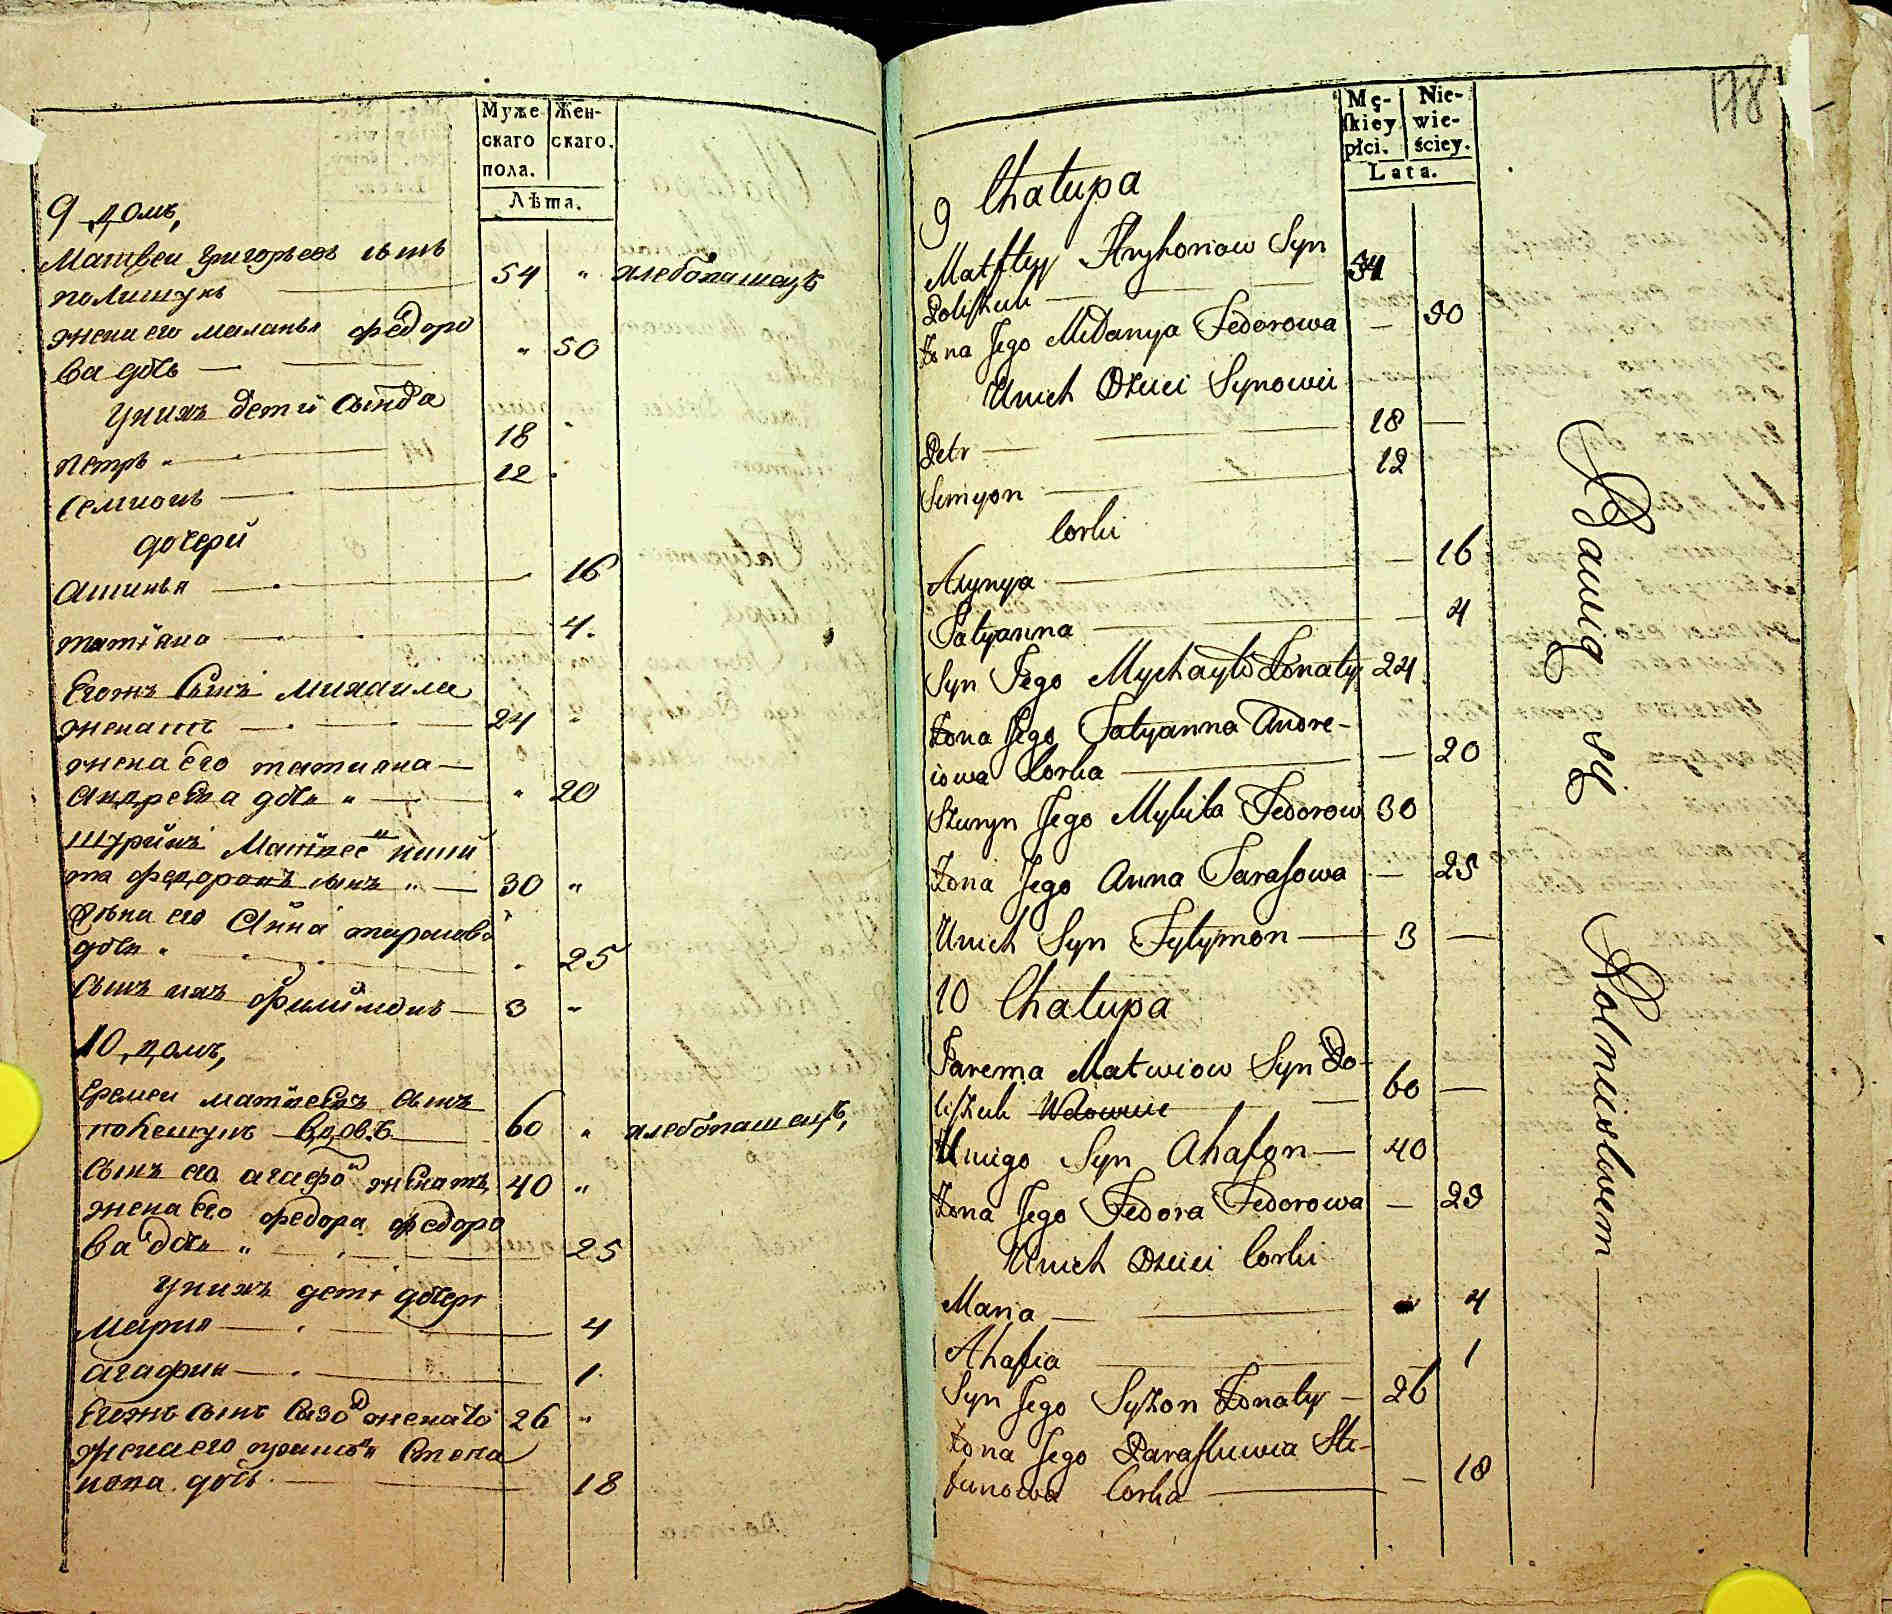 Муже-
скаго
пола.
Жен-
скаго.
Лѣта.
9 домъ,
Матвеи Григорьевъ сынъ
полищукъ 54 " хлебопашецъ
жена его маланья федоро
ва дочь " 50
У нихъ дети сынове
Петръ 18
Семионъ 12
дочери
16
татiяна 4.
Егожъ сынъ михаила
женатъ 24 "
жена его татияна
Андреева дочь " 20
шуринъ Матвее ники
та федоровъ сынъ 30 "
жена его Анна тарасова
дочь 25
сынъ ихъ филимонъ 3 "
10 домъ,
Еремеи матвеевъ сынъ
полещукъ вдовъ 60 " хлебопашецъ,
Сынъ его агафо женатъ 40 "
жена его федора федоро
ва дочь " 25
У нихъ дети дочери
Мария 4
агафия 1
Егожъ сынъ Сазо женатъ 26 "
жена его Степа
нова дочь 18
178
Mę-
ſkiey
płci.
Nie-
wie-
ściey.
Lata.
9 Chałupa
Matfiey Hryhoriow Syn
Poliſzuk 54
Żona Jego Mełanya Fedorowa — 50
U nich Dzieci Synowie
Petr 18 —
Semyon 12
Corki
Axynya — 16
Tatyanna — 4
Syn Jego Mychayło Żonaty 24
Żona Jego Tatyanna Andre-
iowa Corka — 20
Szuryn Jego Mykita Fedorow 30
Żona Jego Anna Taraſowa — 25
U nich Syn Fylymon — 3 —
10 Chałupa
Jarema Matwiow Syn Po-
liſzuk Wdowiec — 60 —
U niego Syn Ahafon — 40
Żona Jego Fedora Fedorowa — 25
U nich Dzieci Corki
Maria — 4
Ahafia — 1
Syn Jego Syzon Żonaty — 26
Żona Jego Paraſkiewia Ste-
panowa Corka — 18
Bawią się Rolnictwem